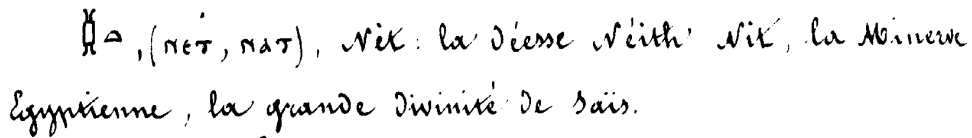 𓋋𓏏, (ⲛⲉⲧ, ⲛⲁⲧ), Nèt : la Déesse Néith' Nit, la Minerve
Egyptienne, la grande Divinité de Saïs.